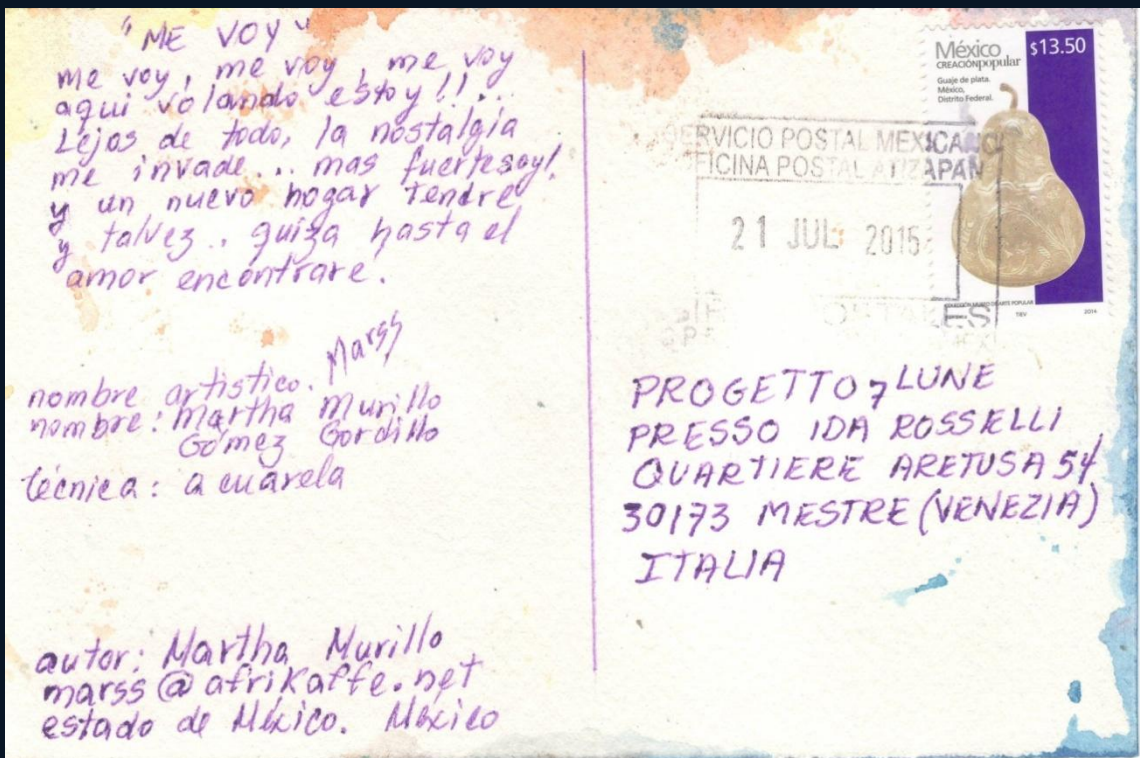 "ME VOY"
me voy, me voy, me voy
aqui volando estoy!!...
Lejos de todo, la nostalgia
me invade... mas fuertesoy!
y un nuevo hogar tendre
y talvez.. quiza hasta el
amor encontrare.
nombre artistico. Marss
nombre: Martha Murillo
Gómez Gordillo
técnica: acuarela
autor: Martha Murillo
marss@afrikaffe.net
estado de México. México
México
CREACIÓNpopular
$13.50
Guaje de plata.
México,
Distrito Federal.
COLECCIÓN MUSEO DE ARTE POPULAR
TIEV
2014
SERVICIO POSTAL MEXICANO
OFICINA POSTAL ATIZAPAN
21 JUL 2015
PROGETTO 7 LUNE
PRESSO IDA ROSSELLI
QUARTIERE ARETUSA 54
30173 MESTRE (VENEZIA)
ITALIA